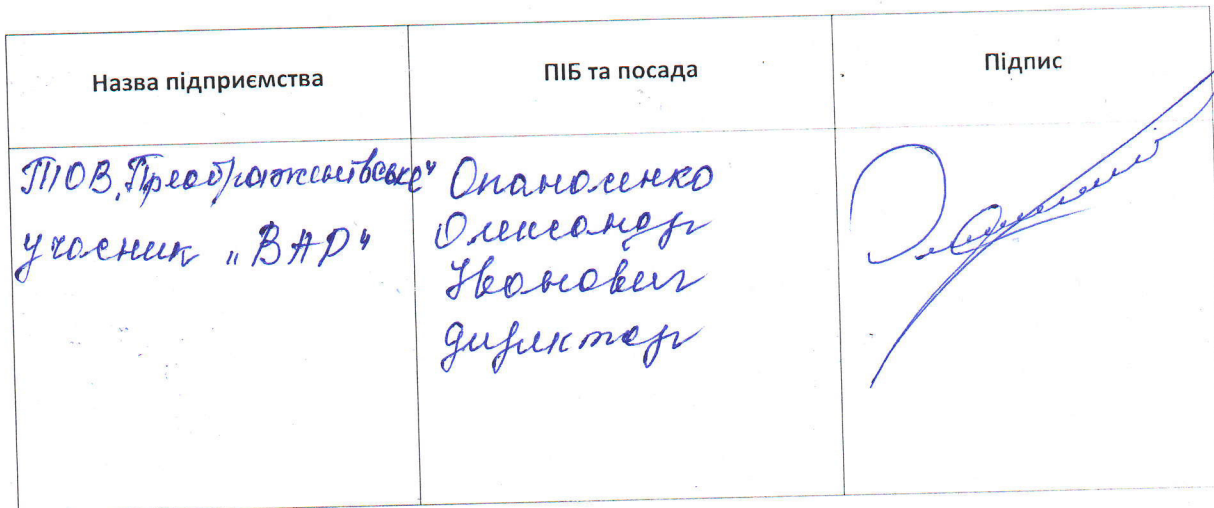 Назва підприємства
ПІБ та посада
Підпис
ТОВ „Преображенівське"
учасник „ВАР"
Опаносенко
Олександр
Іванович
директор